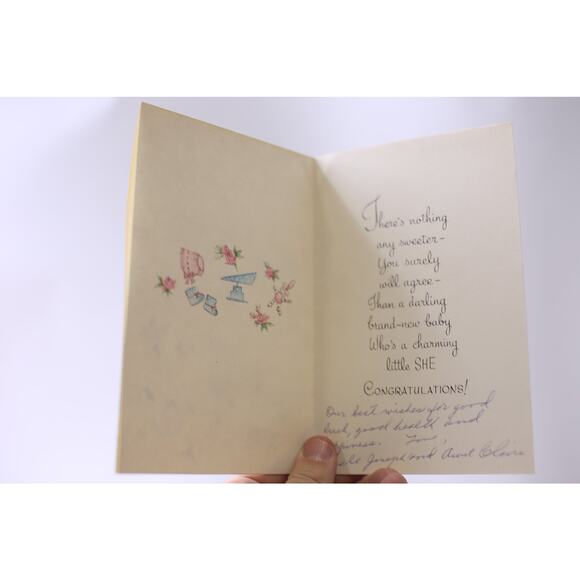 There's nothing
any sweeter-
You surely
will agree-
Than a darling
brand-new baby
Who's a charming
little SHE
CONGRATULATIONS!
Our best wishes for good
luck, good health and
Love,
Joseph and Aunt Claire